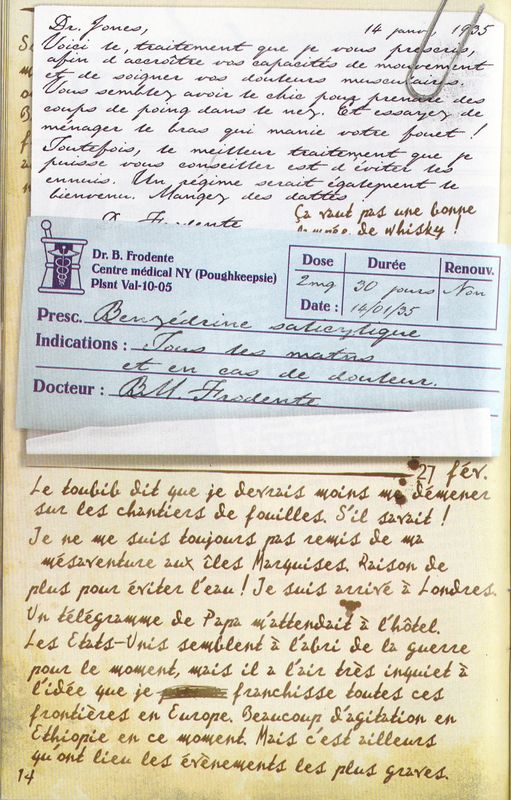 Dr. Jones, 14 janv. 1935
Voici le traitement que je vous prescris,
afin d'accroître vos capacités de mouvement
et de soigner vos douleurs musculaires.
Vous semblez avoir le chic pour prendre des
coups de poing dans le nez. Et essayez de
ménager le bras qui manie votre fouet !
Toutefois, le meilleur traitement que je
puisse vous conseiller est d'éviter les
ennuis. Un régime serait également le
bienvenu. Mangez des dattes !
Frodente
Ça vaut pas une bonne
de whisky !
Dr. B. Frodente
Centre médical NY (Poughkeepsie)
Plsnt Val-10-05
Dose Durée Renouv.
2mg 30 jours Non
Date : 14/01/35
Presc. Benzédrine salicylique
Indications : Tous les matins
et en cas de douleur.
Docteur : BM Frodente
27 fév.
Le toubib dit que je devrais moins me démener
sur les chantiers de fouilles. S'il savait !
Je ne me suis toujours pas remis de ma
mésaventure aux îles Marquises. Raison de
plus pour éviter l'eau ! Je suis arrivé à Londres.
Un télégramme de Papa m'attendait à l'hôtel.
Les Etats-Unis semblent à l'abri de la guerre
pour le moment, mais il a l'air très inquiet à
l'idée que je franchisse toutes ces
frontières en Europe. Beaucoup d'agitation en
Ethiopie en ce moment. Mais c'est ailleurs
qu'ont lieu les évènements les plus graves.
14